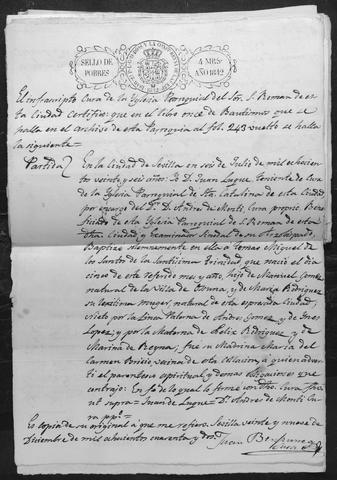 SELLO DE POBRES
4 MRS. AÑO 1842
El infrascripto Cura de la Yglesia Parroquial del Sor. S. Roman de es
ta Ciudad Certifico: que en el libro once de Bautismos que se
halla en el Archivo de esta Parroquia al fol. 243 vuelto se halla
la siguiente
Partida En la Ciudad de Sevilla en seis de Julio de mil ochocien
tos veinte y seis años. Yo D. Juan Luque Teniente de Cura
de la Yglesia Parroquial de Sta. Catalina de esta Ciudad
por encargo del Dr. D. Andres de Monti Cura propio Bene
ficiado de esta Yglesia Parroquial de S. Roman de esta
dha. Ciudad y Examinador Sinodal de su Arzobispado,
Baptize solemnemente en ella a Tomas Miguel de
los Santos de la Santisima Trinidad que nació el dia
cinco de este referido mes y año, hijo de Manuel Gomez
natural de la Villa de Osuna, y de Maria Rodriguez
su legitima muger, natural de esta expresada Ciudad,
nieto por la Linea Paterna de Andres Gomez y de Ines
Lopez; y por la Materna de Felix Rodriguez y de
Marina de Reyna; fue su Madrina Maria del
Carmen vecina de esta Collacion a quien adver
ti el parentesco espiritual y demas obligaciones que
contrajo: En fe de lo qual lo firmé con dho. Cura fha.
ut supra = Juan de Luque = D. Andres de Monti Cu
ra ppo.
Es copia de su original á que me refiero. Sevilla veinte y nueve de
Diciembre de mil ochocientos cuarenta y dos.
Juan